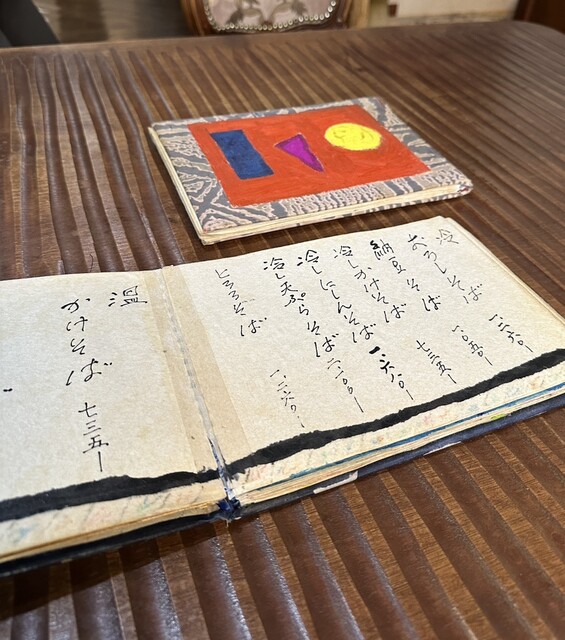 冷
おろしそば 一二六〇ー
納豆そば 一〇五〇ー
冷しかけそば 七三五ー
冷しにしんそば 一六八〇ー
冷し天ぷらそば 二一〇〇ー
とろろそば 一二六〇ー
温
かけそば 七三五ー